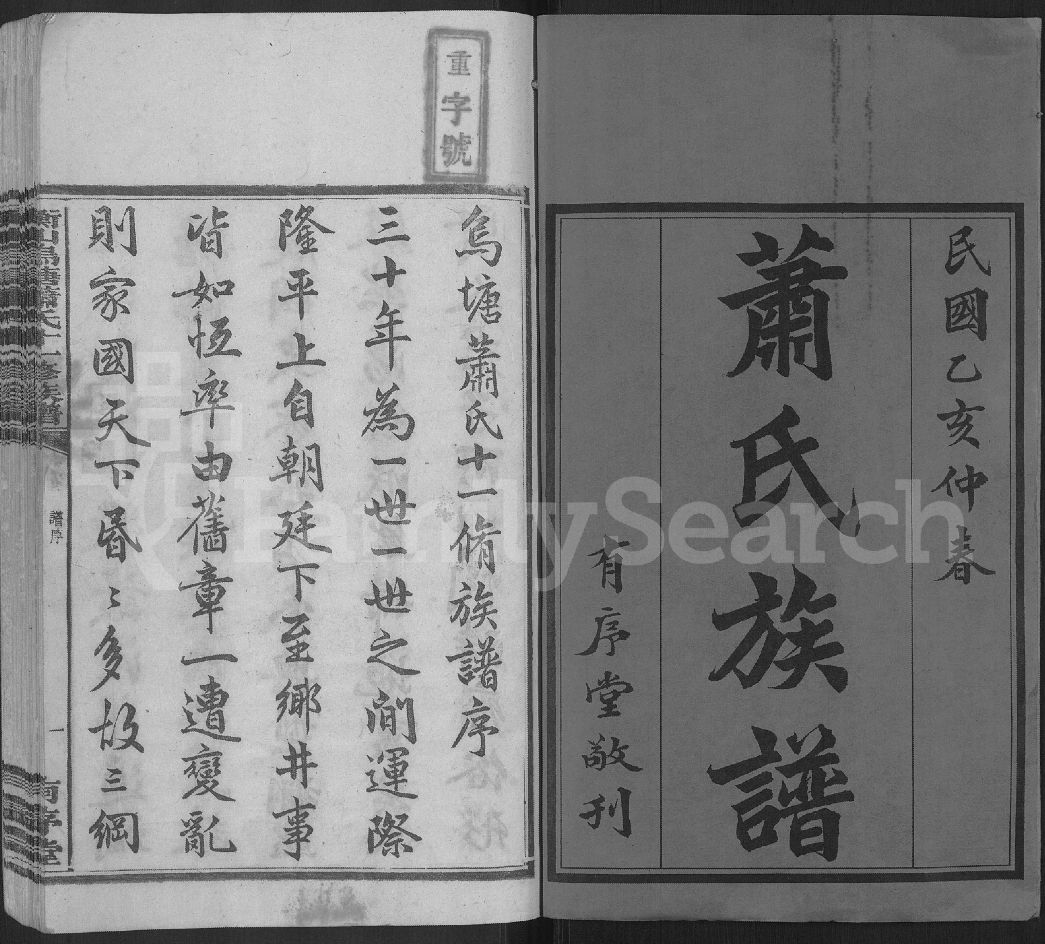 民國乙亥仲春
蕭氏族譜
有序堂敬刊
重字號
烏塘蕭氏十一脩族譜序
三十年為一世一世之間運際
隆平上自朝廷下至鄉井事
皆如恆率由舊章一遭變亂
則家國天下昬〻多故三綱
衡山烏塘蕭氏十一修族譜
譜序
一
有序堂
FamilySearch